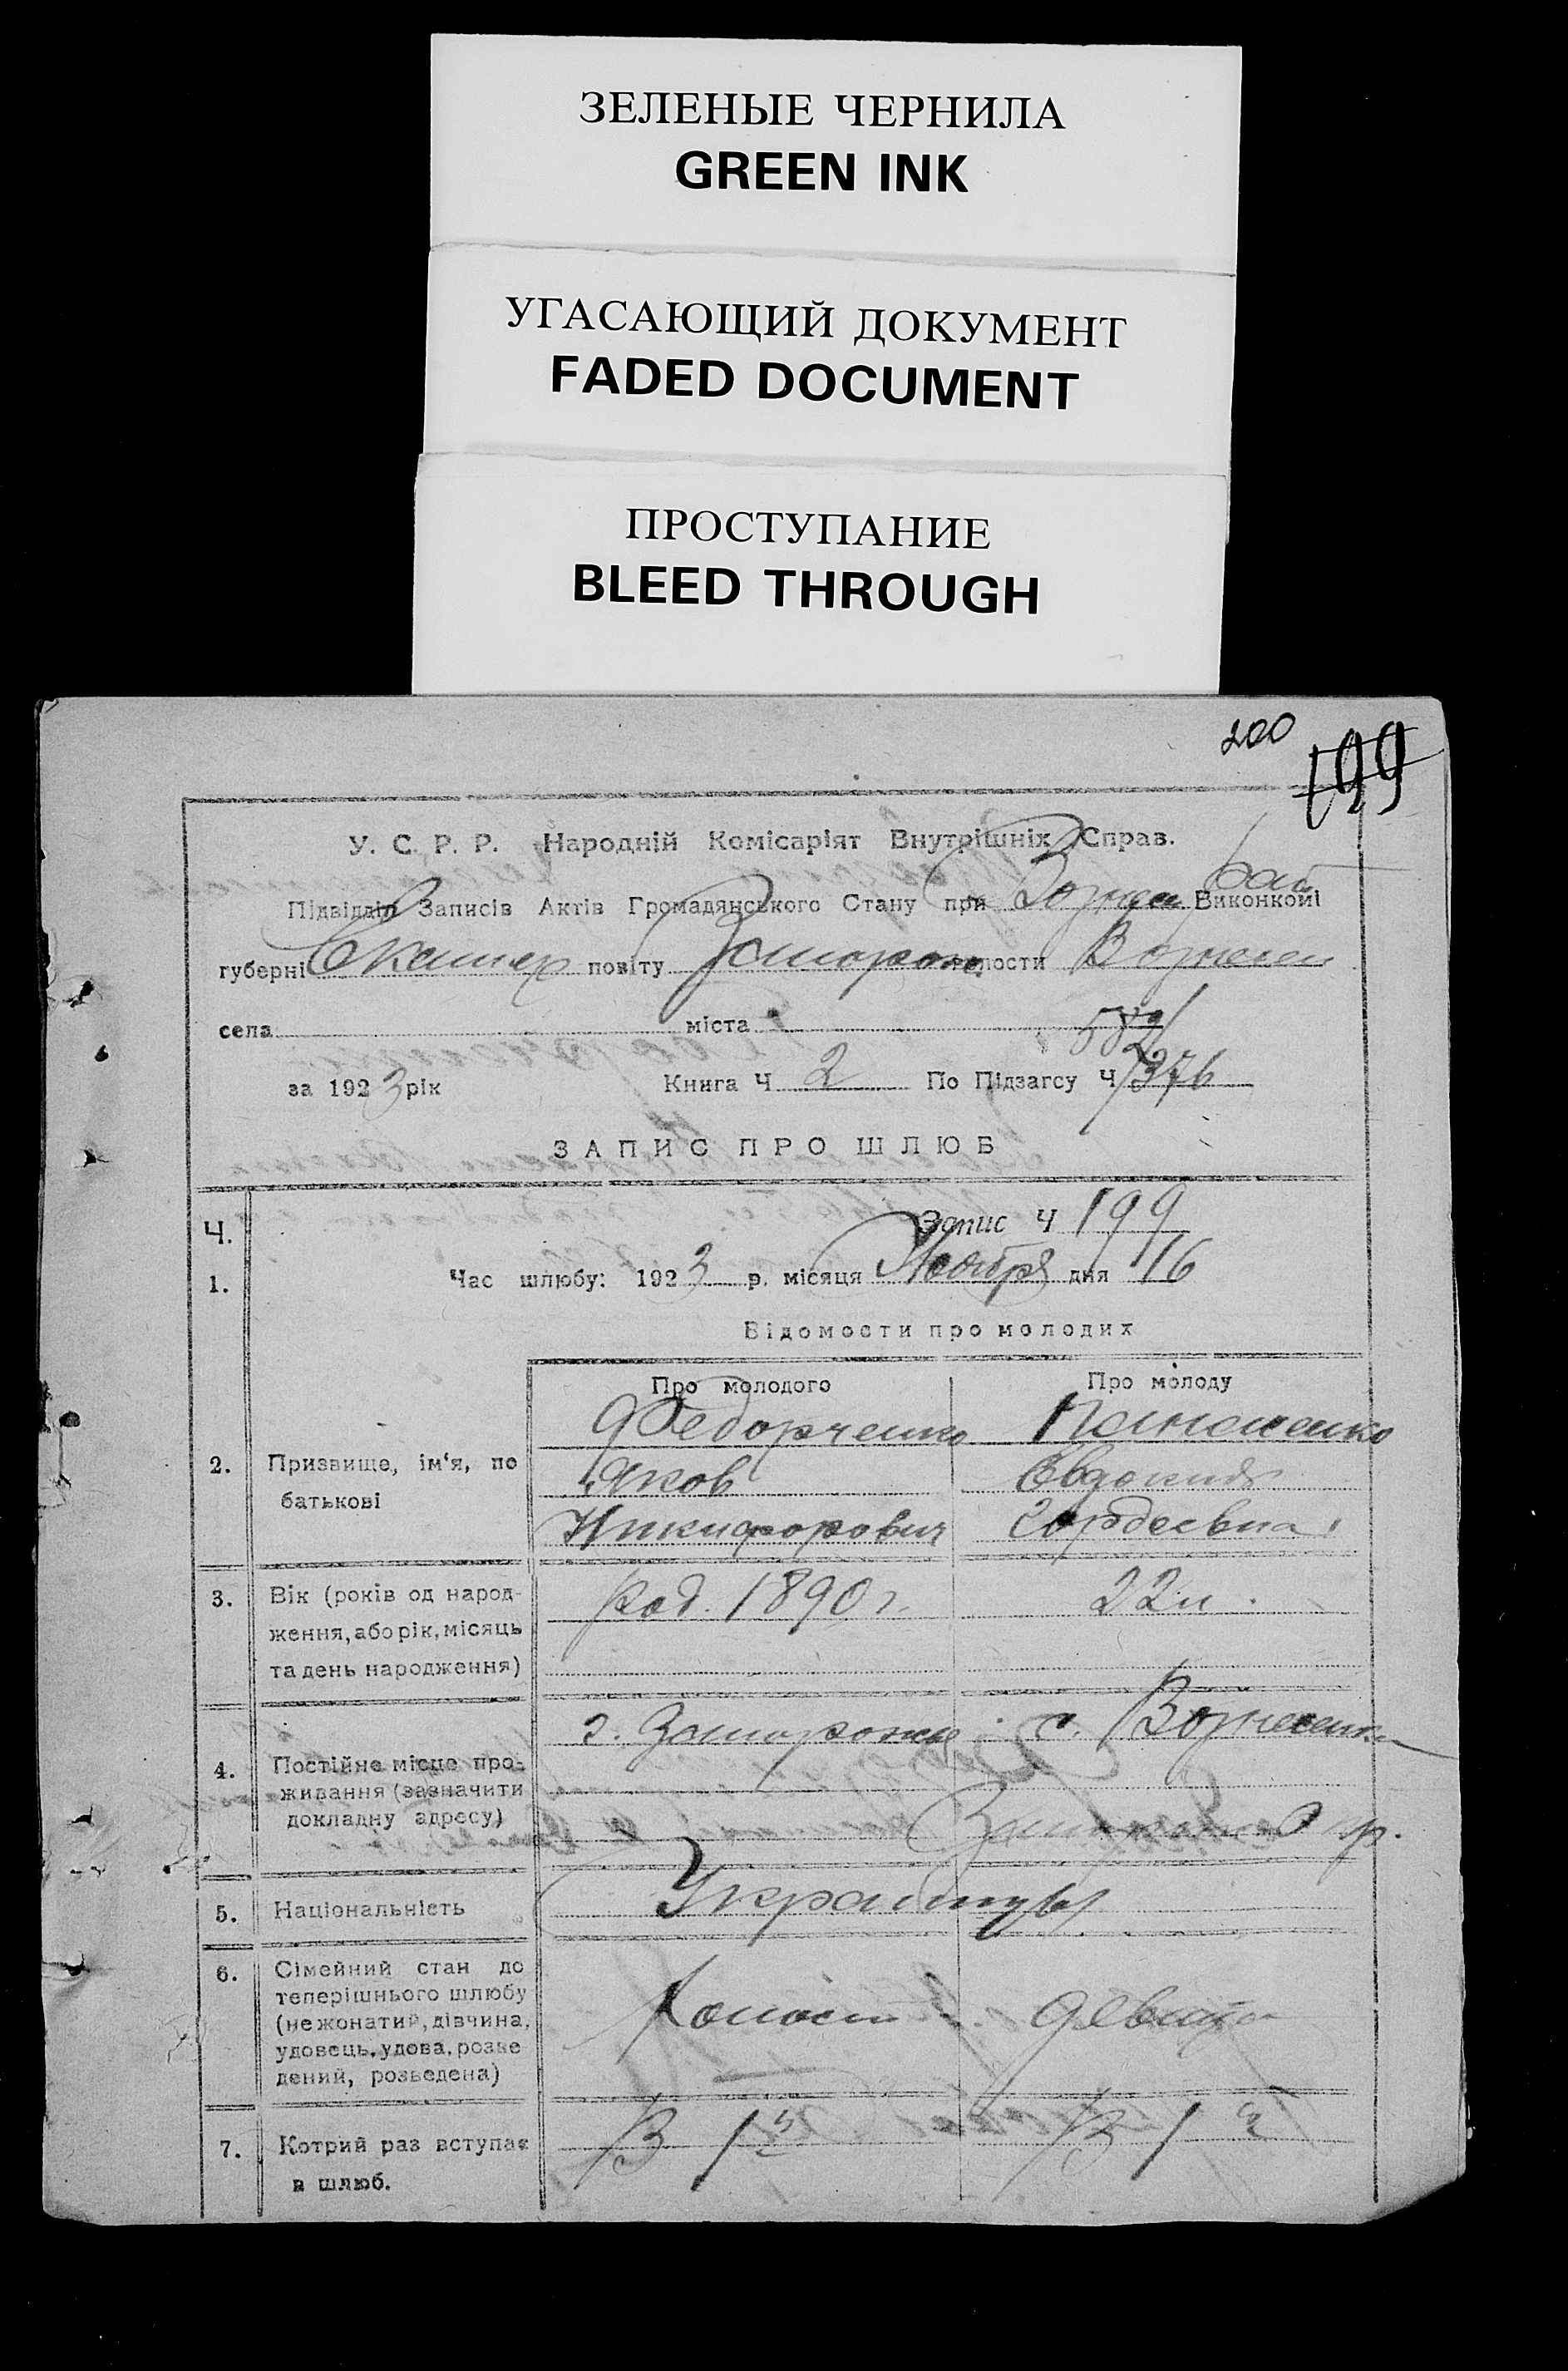 ЗЕЛЕНЫЕ ЧЕРНИЛА
GREEN INK
УГАСАЮЩИЙ ДОКУМЕНТ
FADED DOCUMENT
ПРОСТУПАНИЕ
BLEED THROUGH
200
199
У. С. Р. Р. Народній Комісаріят Внутрішніх Справ.
Підвідділ Записів Актів Громадянського Стану при Вознесен рай Виконкомі
губерні Екатер повіту Запорож волости Вознесен
села міста
за 1923 рік Книга Ч 2 По Підзагсу Ч 376
ЗАПИС ПРО ШЛЮБ
Ч. Запис Ч 199
1. Час шлюбу: 1923 р. місяця Ноября дня 16
Відомости про молодих
Про молодого Про молоду
Федорченко
2. Призвище, ім‘я, по Яков Евдокия
батькові
Никифорович Гордеевна
3. Вік (років од народ- род. 1890 г. 22 л.
ження, або рік, місяць
та день народження)
г. Запорожье с. Вознесенка
4. Постійне місце про-
живання (зазначити
докладну адресу) Запорожск Окр.
5. Національність Украинцы
6. Сімейний стан до
теперішнього шлюбу
(нежонатий, дівчина, Холост девица
удовець, удова, розве
дений, розведена)
7. Котрий раз вступає В 1й В 1й
в шлюб.